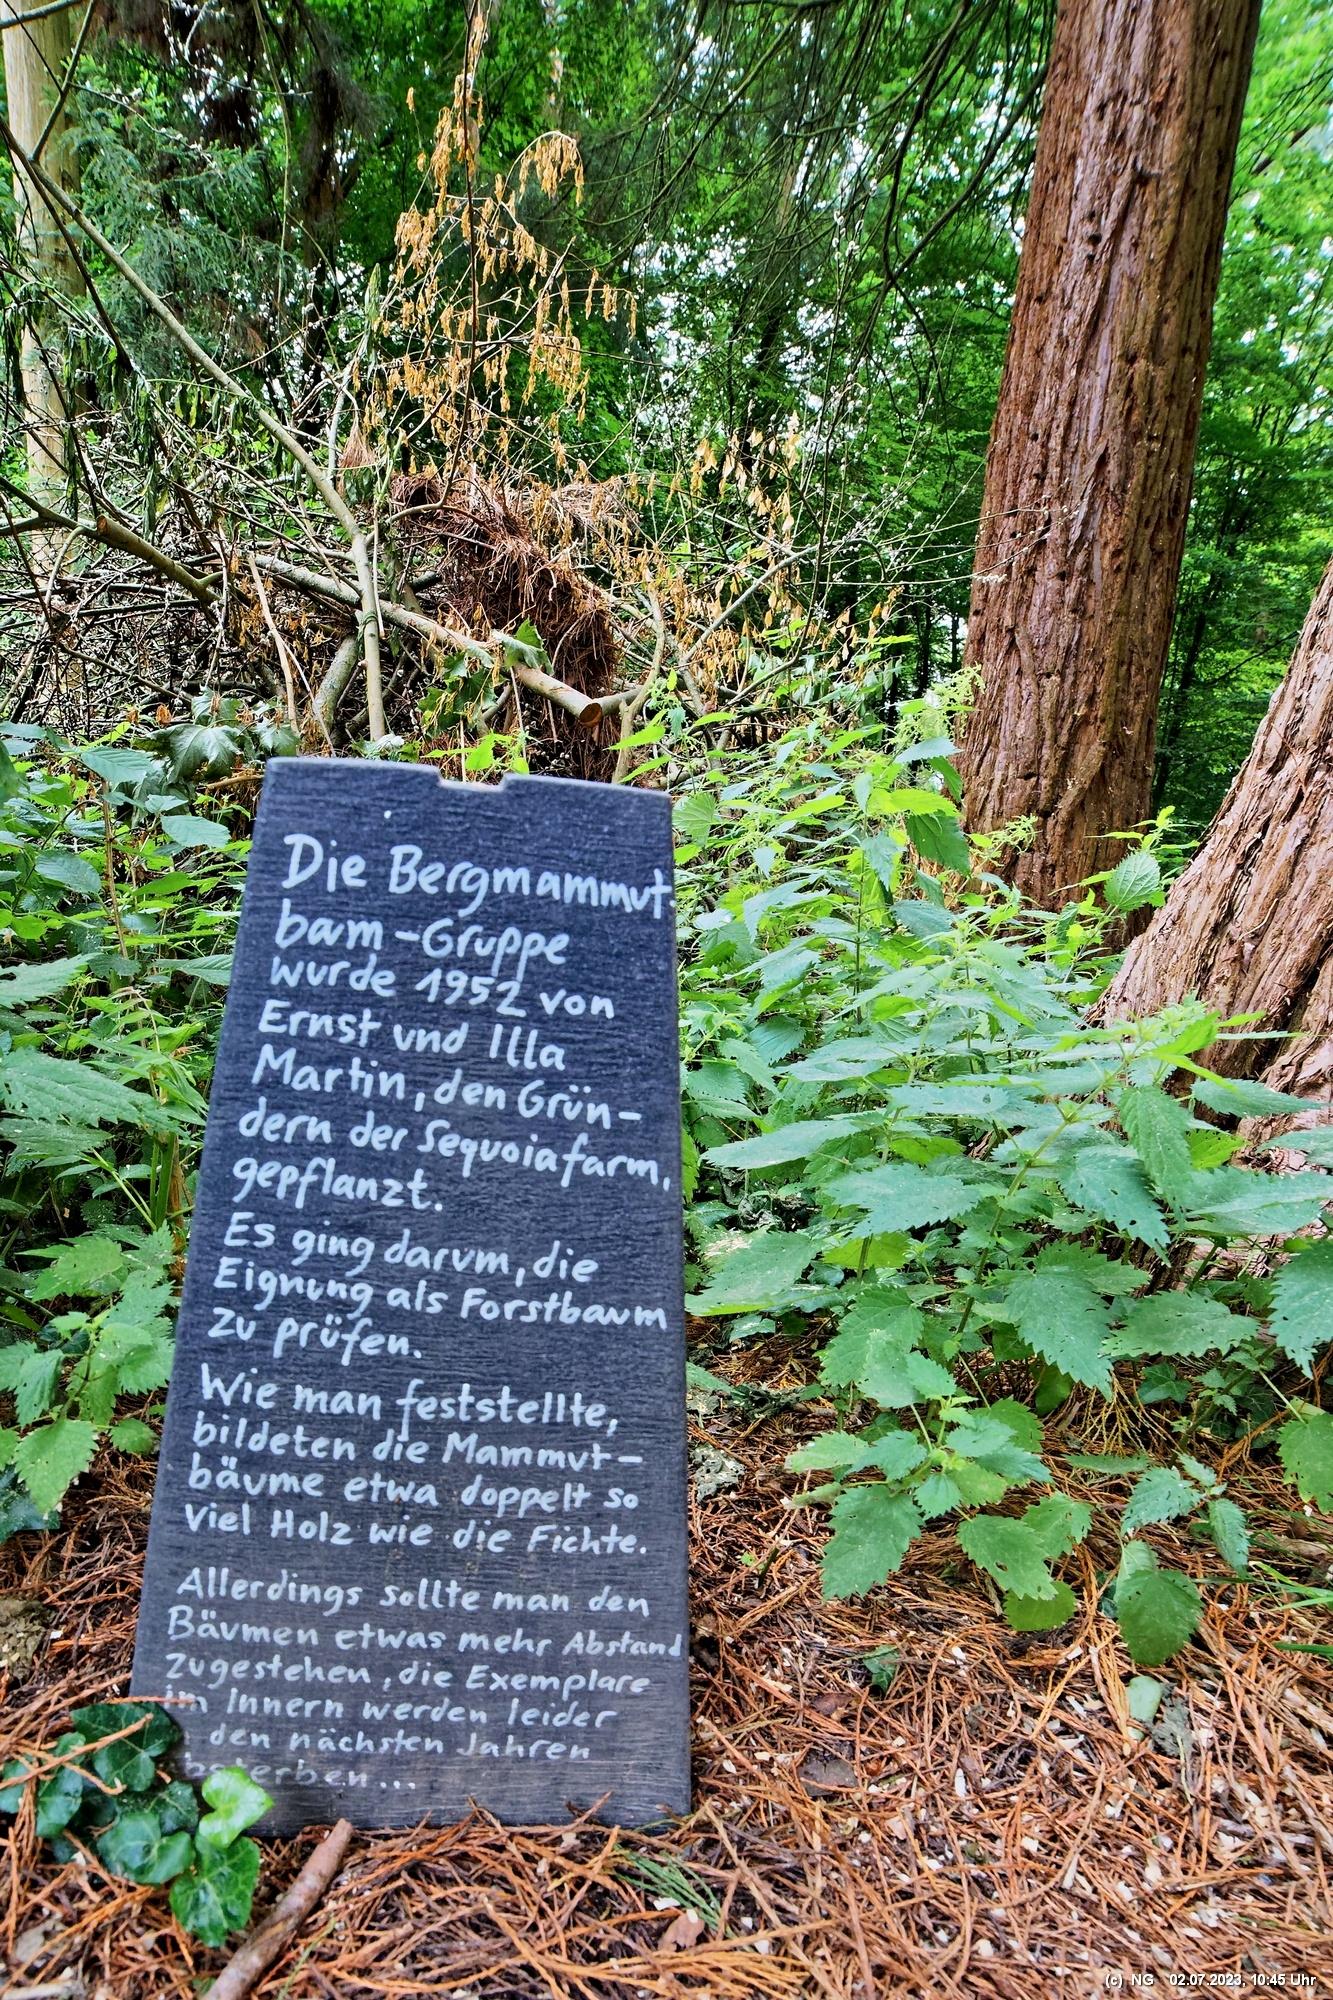 Die Bergmammut-
bam-Gruppe
wurde 1952 von
Ernst und Illa
Martin, den Grün-
dern der Sequoiafarm,
gepflanzt.
Es ging darum, die
Eignung als Forstbaum
zu prüfen.
Wie man feststellte,
bildeten die Mammut-
bäume etwa doppelt so
viel Holz wie die Fichte.
Allerdings sollte man den
Bäumen etwas mehr Abstand
zugestehen, die Exemplare
im Innern werden leider
den nächsten Jahren
bsterben...
(c) NG 02.07.2023, 10:45 Uhr